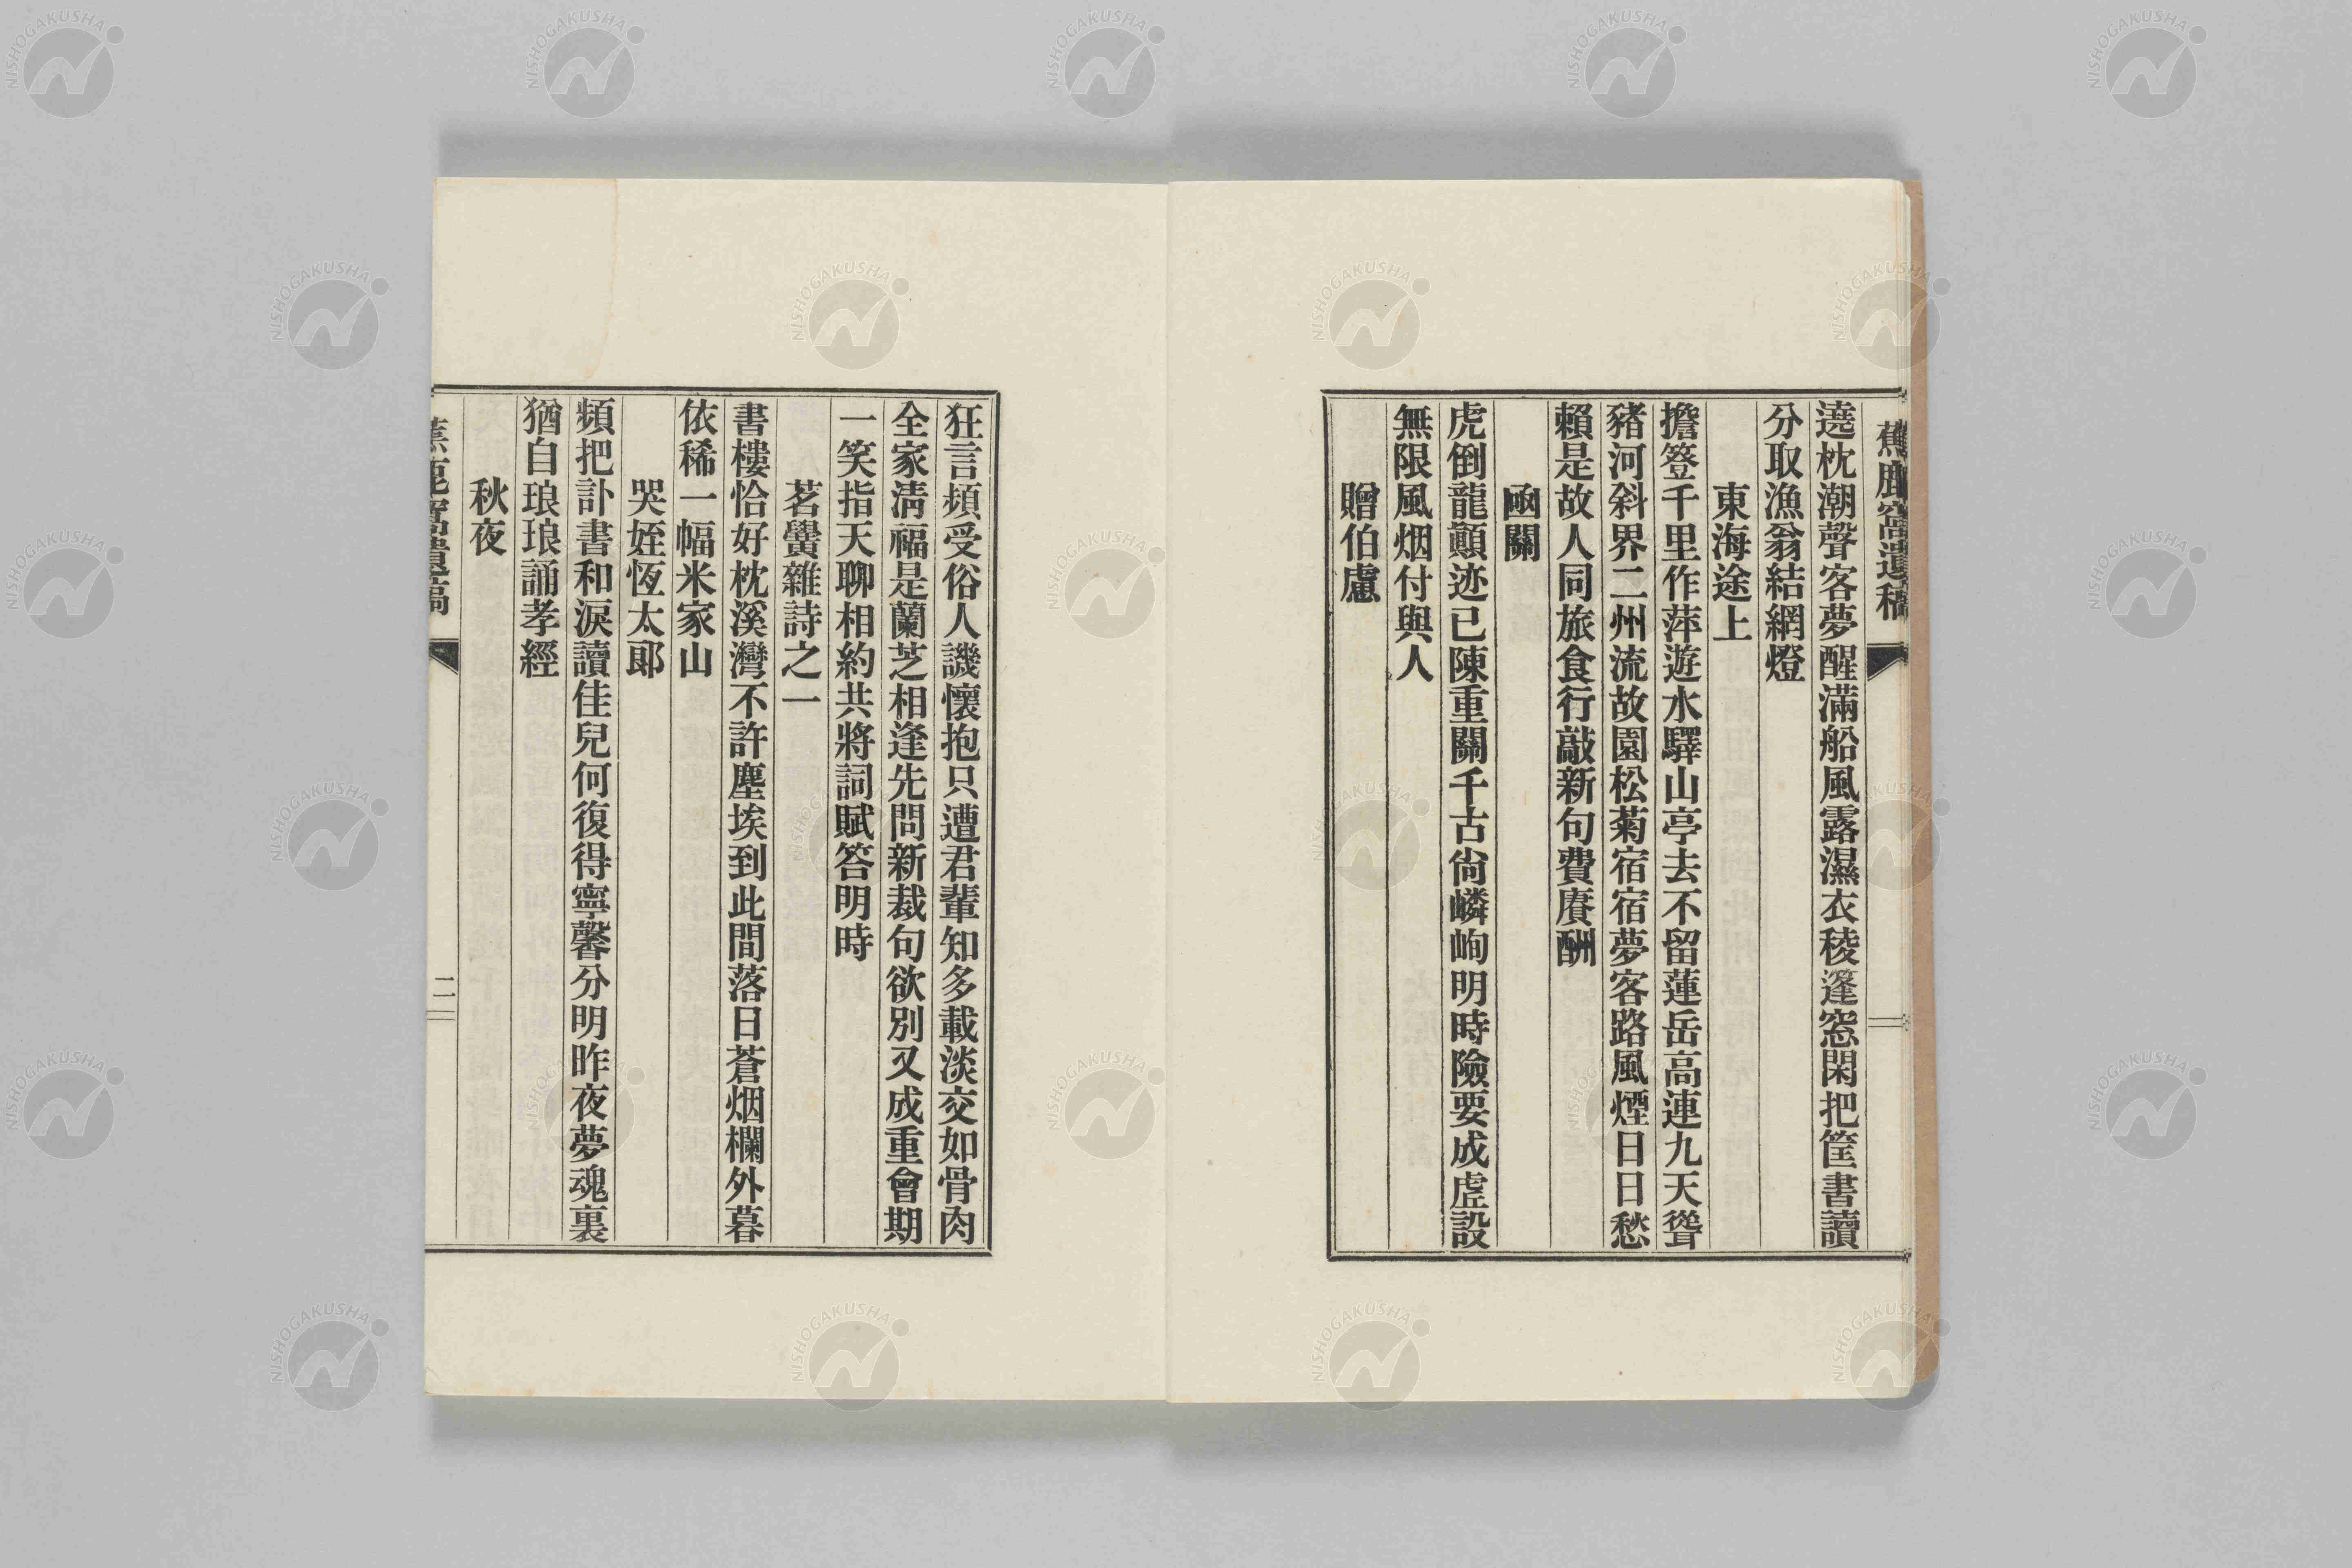 蕉鹿窩遺稿
遶枕潮聲客夢醒滿船風露濕衣稜篷窓閑把筐書讀
分取漁翁結網燈
東海途上
擔簦千里作萍遊水驛山亭去不留蓮岳高連九天聳
豬河斜界二州流故園松菊宿宿夢客路風煙日日愁
賴是故人同旅食行敲新句費賡酬
凾關
虎倒龍顚迹已陳重關千古尙嶙峋明時險要成虛設
無限風烟付與人
贈伯慮
狂言頻受俗人譏懷抱只遭君輩知多載淡交如骨肉
全家淸福是蘭芝相逢先問新裁句欲別又成重會期
一笑指天聊相約共將詞賦答明時
茗黌雜詩之一
書樓恰好枕溪灣不許塵埃到此間落日蒼烟欄外暮
依稀一幅米家山
哭姪恆太郞
頻把訃書和淚讀佳兒何復得寧馨分明昨夜夢魂裏
猶自琅琅誦孝經
秋夜
蕉鹿窩遺稿
二
NISHOGAKUSHA